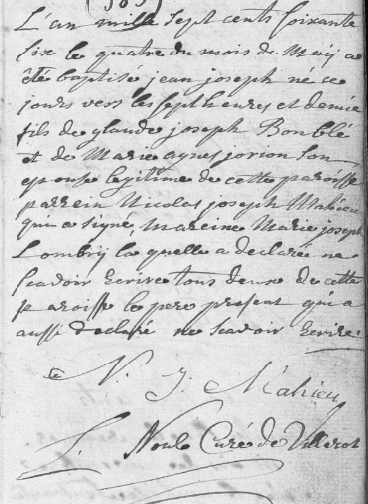 L'an mille Sept cents Soixante
Six le quatre du mois de May a
été baptisé jean joseph né ce
jours vers les sept heures et demie
fils de glaude joseph Bonblé
et de Marie agnes jorion Son
epouse legitime de cette paroisse
parrein Nicolas joseph Mahieu
qui a signé, mareine Marie joseph
Lombrij la quelle a declaré ne
Scavoir Ecrire tous deux de cette
paroisse le pere present qui a
aussi declaré ne Scavoir Ecrire.
N. J. Mahieu
Noul Curé de Villerot